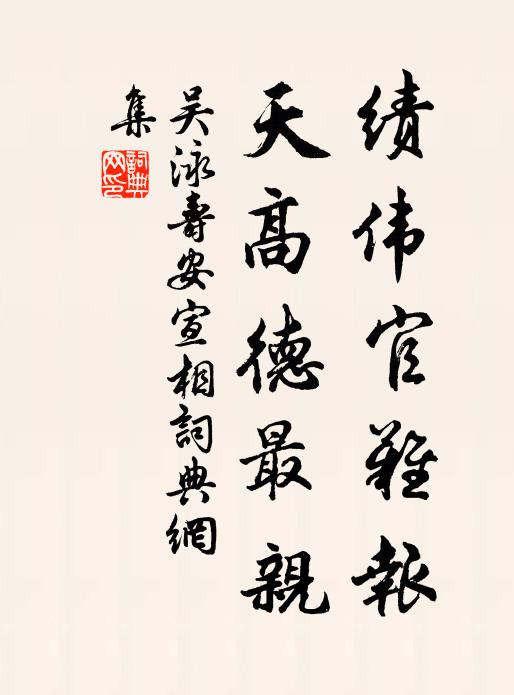 绩伟官难報
天高德最親
吴泳壽安宣相詞典網
集
詞典
网印